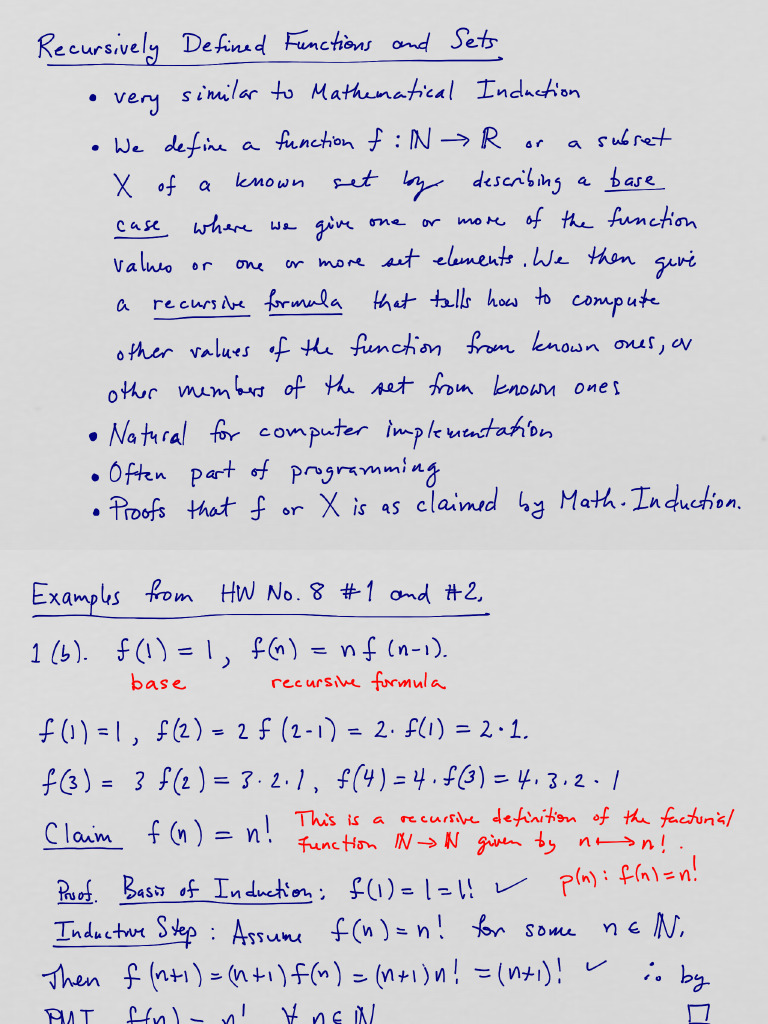 Recursively Defined Functions and Sets
• very similar to Mathematical Induction
• We define a function f : ℕ → ℝ or a subset
X of a known set by describing a base
case where we give one or more of the function
values or one or more set elements. We then give
a recursive formula that tells how to compute
other values of the function from known ones, or
other members of the set from known ones
• Natural for computer implementation
• Often part of programming
• Proofs that f or X is as claimed by Math. Induction.
Examples from HW No. 8 #1 and #2.
1 (b). f(1) = 1, f(n) = n f (n-1).
base recursive formula
f(1) = 1, f(2) = 2 f (2-1) = 2· f(1) = 2·1.
f(3) = 3 f(2) = 3·2·1, f(4) = 4·f(3) = 4·3·2·1
Claim f(n) = n! This is a recursive definition of the factorial
function ℕ → ℕ given by n ↦ n!.
Proof. Basis of Induction: f(1) = 1 = 1! ✓ p(n): f(n) = n!
Inductive Step: Assume f(n) = n! for some n ∈ ℕ.
Then f(n+1) = (n+1) f(n) = (n+1) n! = (n+1)! ✓ ∴ by
PMI f(n) = n! ∀ n ∈ ℕ □